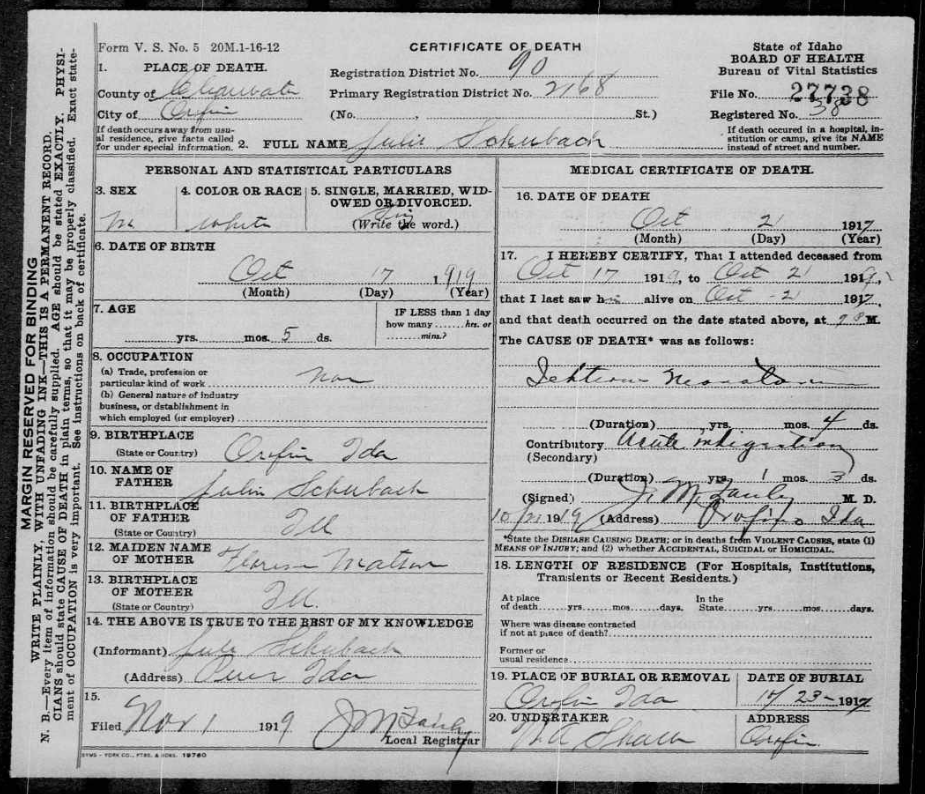 MARGIN RESERVED FOR BINDING
WRITE PLAINLY, WITH UNFADING INK—THIS IS A PERMANENT RECORD.
N. B.—Every item of information should be carefully supplied. AGE should be stated EXACTLY. PHYSI-
CIANS should state CAUSE OF DEATH in plain terms, so that it may be properly classified. Exact state-
ment of OCCUPATION is very important. See instructions on back of certificate.
Form V. S. No. 5 20M.1-16-12
CERTIFICATE OF DEATH
State of Idaho
BOARD OF HEALTH
Bureau of Vital Statistics
1. PLACE OF DEATH.
Registration District No. 90
County of Clearwater
Primary Registration District No. 2168
File No. 27738
City of Orofino
(No. St.)
Registered No. 38
If death occurs away from usu-
al residence, give facts called
for under special information.
2. FULL NAME Julie Schubach
If death occured in a hospital, in-
stitution or camp, give its NAME
instead of street and number.
PERSONAL AND STATISTICAL PARTICULARS
3. SEX
4. COLOR OR RACE
5. SINGLE, MARRIED, WID-
OWED OR DIVORCED.
M
white
Sing
(Write the word.)
6. DATE OF BIRTH
Oct 17 1919
(Month) (Day) (Year)
7. AGE
IF LESS than 1 day
how many hrs. or
mins.?
yrs. mos. 5 ds.
8. OCCUPATION
(a) Trade, profession or
particular kind of work non
(b) General nature of industry
business, or dstablishment in
which employed (or employer)
9. BIRTHPLACE
(State or Country) Orofino Ida
10. NAME OF
FATHER Schubach
11. BIRTHPLACE
OF FATHER Ill
(State or Country)
12. MAIDEN NAME
OF MOTHER Matson
13. BIRTHPLACE
OF MOTHER Ill.
(State or Country)
14. THE ABOVE IS TRUE TO THE BEST OF MY KNOWLEDGE
(Informant) Schubach
(Address) Ida
15.
Filed Nov 1 1919 J M Fairly
Local Registrar
SYMS-YORK CO., PTRS. & BNDS. 19760
MEDICAL CERTIFICATE OF DEATH.
16. DATE OF DEATH
Oct 21 1917
(Month) (Day) (Year)
17. I HEREBY CERTIFY, That I attended deceased from
Oct 17 1919, to Oct 21 1919,
that I last saw him alive on Oct 21 1917,
and that death occurred on the date stated above, at M.
The CAUSE OF DEATH* was as follows:
Ichterus Neonatorum
(Duration) yrs. mos. 4 ds.
Contributory Acute indigestion
(Secondary)
(Duration) yrs. mos. 3 ds.
(Signed) J. M Fairly M. D.
10/21 1919 (Address) Orofino Ida
*State the DISEASE CAUSING DEATH; or in deaths from VIOLENT CAUSES, state (1)
MEANS OF INJURY; and (2) whether ACCIDENTAL, SUICIDAL or HOMICIDAL.
18. LENGTH OF RESIDENCE (For Hospitals, Institutions,
Transients or Recent Residents.)
At place
of death yrs. mos days.
In the
State yrs. mos. days.
Where was disease contracted
if not at place of death?
Former or
usual residence
19. PLACE OF BURIAL OR REMOVAL
DATE OF BURIAL
Orofino Ida
10/23-1917
20. UNDERTAKER
ADDRESS
Orofino